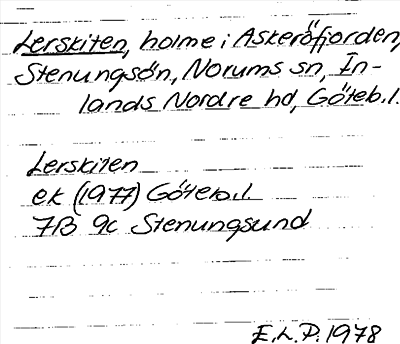 Lerskiten, holme i Askeröfjorden,
Stenungsön, Norums sn, In-
lands Nordre hd, Göteb.l.
Lerskiten
ek (1977) Göteb.l.
7B 9c Stenungsund
E.L.P. 1978